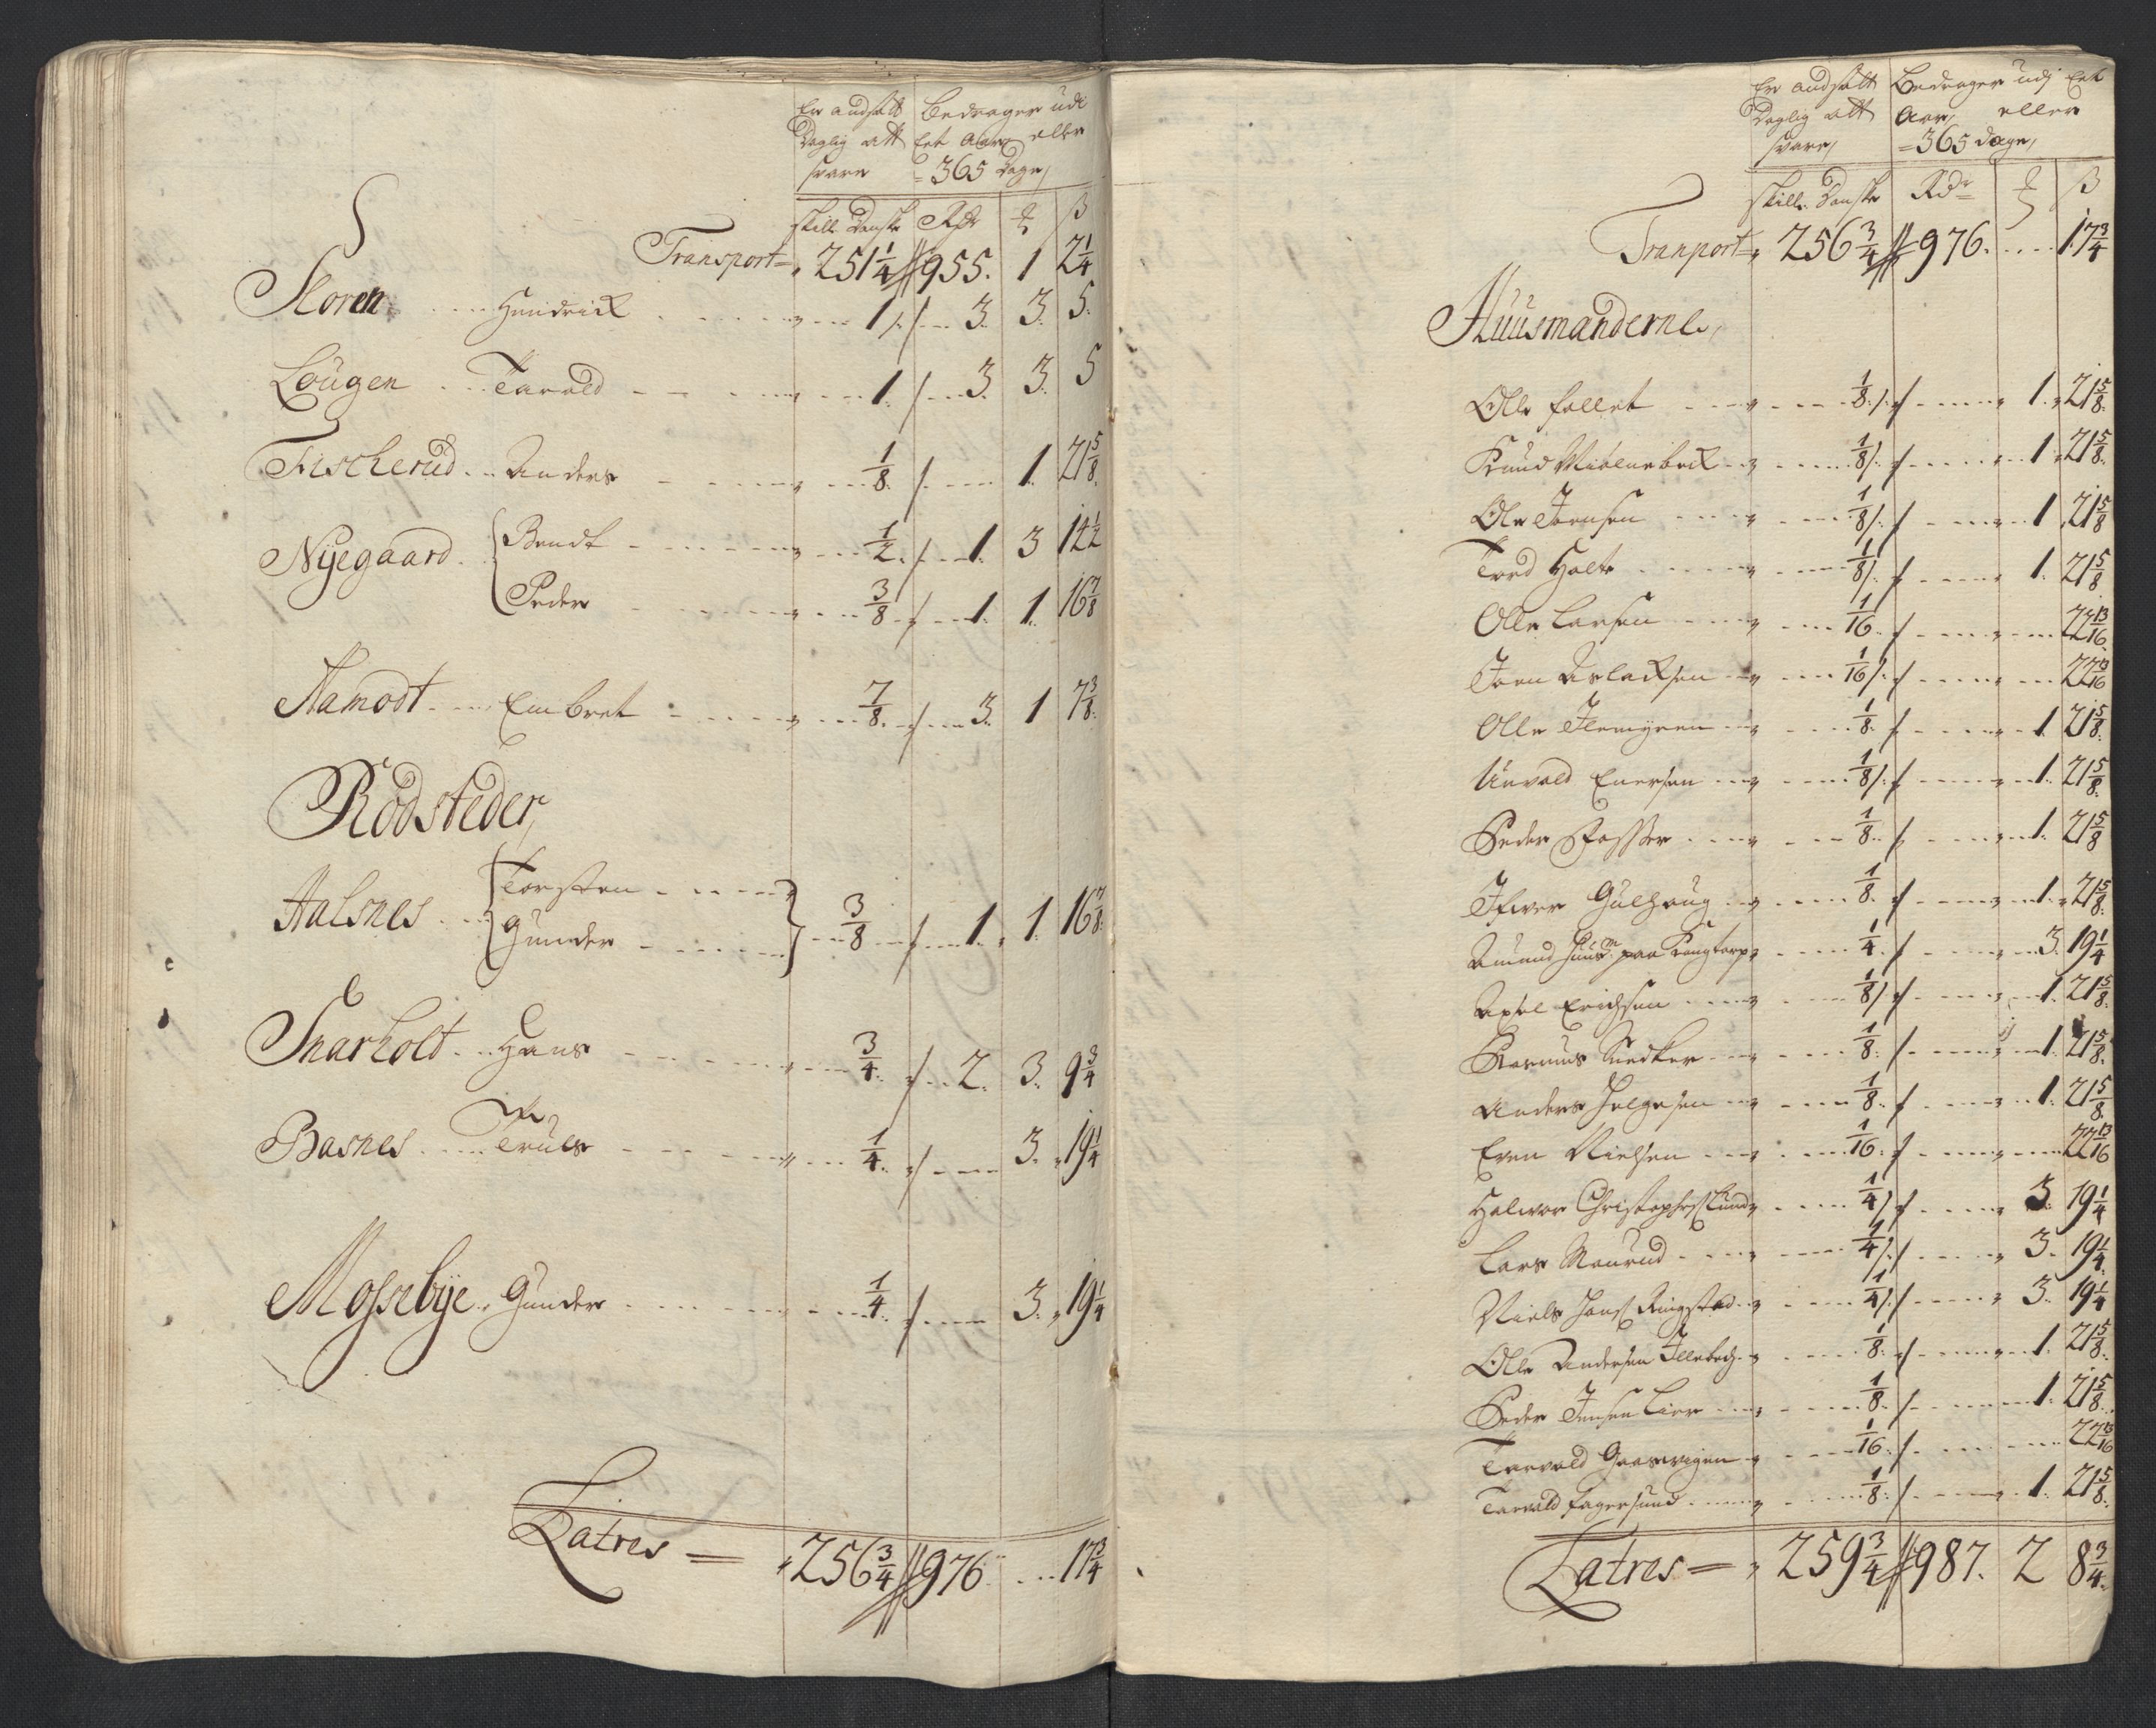 Er andsatt Daglig att svare
Bedrager udi Eet Aar eller = 365 Dage,
skill Danske Rdr ₰ β
Transport = 251 1/4 // 955. 1 2 1/4
Sloren Hendrick 1 /. 3. 3. 5.
Lougen Tarald 1. /. 3. 3. 5
Fischerud Anders 1/8. /. 1. 21 5/8.
Nyegaard { Bendt 1/2. /. 1. 3 14 1/2
Peder 3/8 /. 1. 1. 16 7/8
Aamodt Embret 7/8. /. 3. 1 7 3/8.
Rödsteder,
Aalsnes { Torsten
Gunder } 3/8 /. 1. 1. 16 7/8.
Snarholt Hans 3/4. /. 2. 3. 9 3/4
Basnes Truls 1/4. /. 3. 19 1/4
Mossebye Gunder 1/4. /. 3. 19 1/4
Latres = 256 3/4 // 976. 17 3/4
Er andsatt Daglig att svare,
Bedrager udj Eet Aar, eller = 365 dage,
skille Danske Rdr β
Tranport = 256 3/4 // 976. 17 3/4
Huusmanderne,
Olle follet 1/8. /. 1. 21 5/8.
Knud Miölnebeck 1/8 /. 1. 21 5/8.
Ole Joensen 1/8 /. 1 21 5/8
Tord Holte 1/8 /. 1. 21 5/8
Olle Larsen 1/16. /. 22 13/16
Joen Aslacksen 1/16 /. 22 13/16
Olle Flemyren 1/8. /. 1 21 5/8.
Unvold Enersen 1/8 /. 1. 21 5/8.
Peder 1/8. /. 1. 21 5/8
Ifwer Gulhoug 1/8. /. 1. 21 5/8.
Amund huusm paa Kongtorp 1/4. /. 3. 19 1/4
Axel Erichsen 1/8 /. 1. 21 5/8.
Rasmus Snedker 1/8. /. 1. 21 5/8.
Anders Helgesen 1/8. /. 1. 21 5/8.
Even Nielsen 1/16. /. 22 13/16
Halvor Christophers Lund 1/4 /. 3. 19 1/4
Lars Mourud 1/4 /. 3. 19 1/4.
Niels Hans Ringstad 1/4 /. 3. 19 1/4
Olle Andersen Illebech 1/8. /. 1. 21 5/8.
Peder Jensen Lier 1/8. /. 1. 21 5/8.
Tarvald Gaasevigen 1/16. /. 22 13/16
Tarvald fagersund 1/8. /. 1. 21 5/8.
Latres = 259 3/4 // 987. 2 8 3/4.